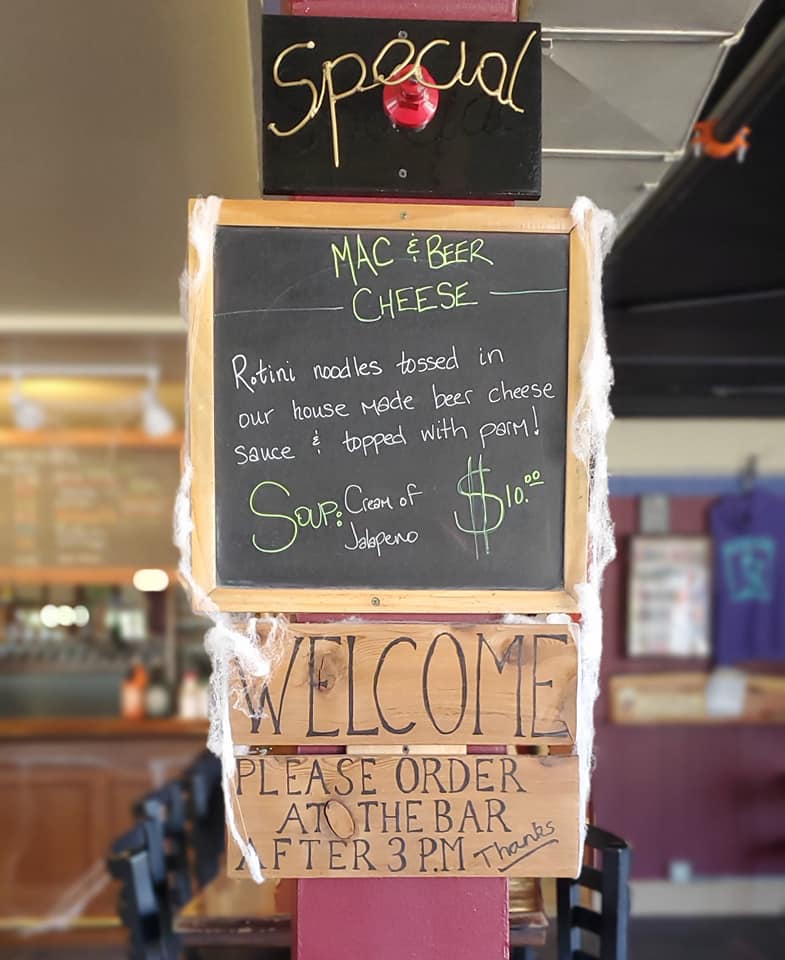 Special
MAC & BEER
CHEESE
Rotini noodles tossed in
our house made beer cheese
sauce & topped with parm!
Soup: Cream of
Jalapeno
$10.00
WELCOME
PLEASE ORDER
AT THE BAR
AFTER 3 P.M
Thanks